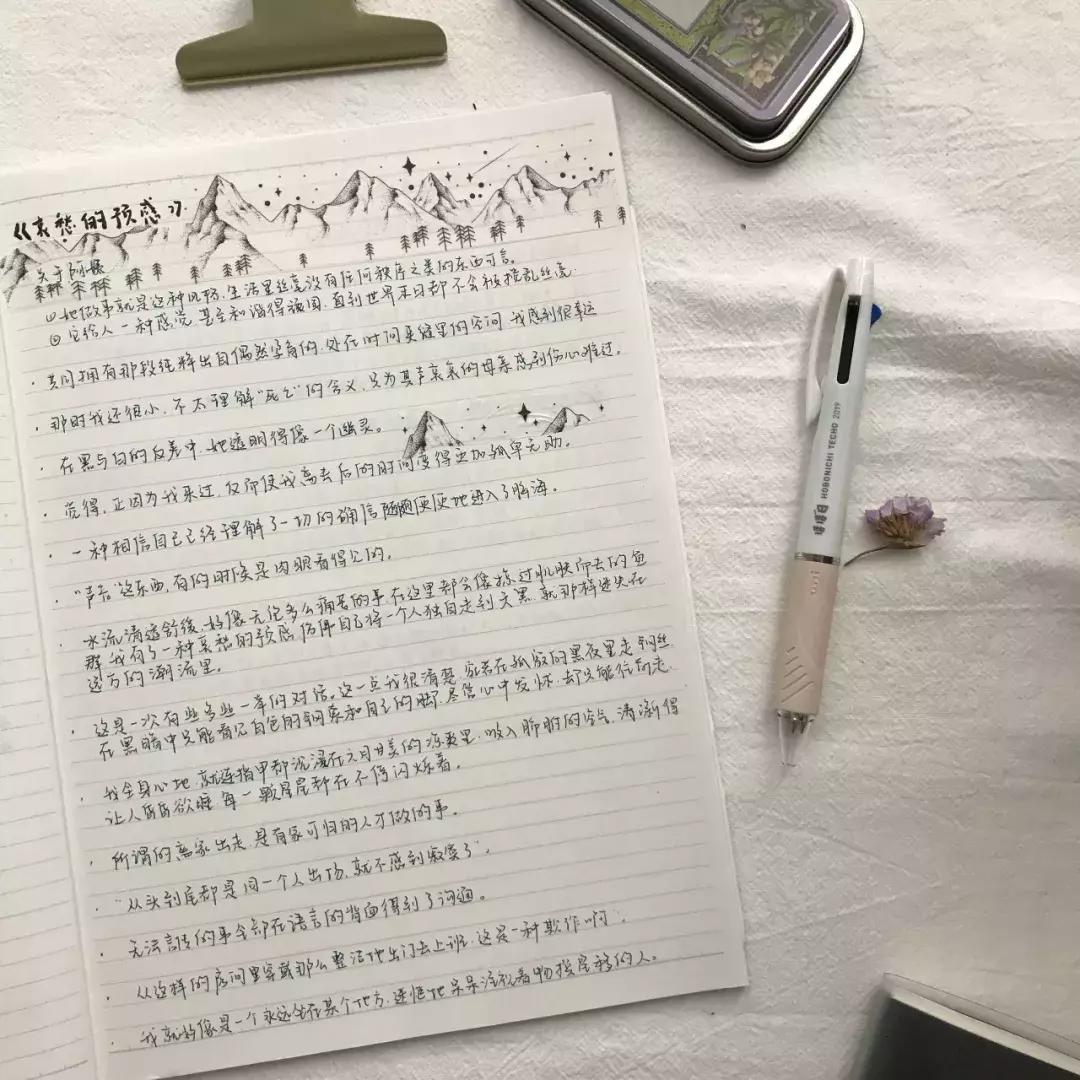 《哀愁的预感》
关于阿姨
①她做事就是这种风格,生活里丝毫没有任何秩序之类的东西可言。
②它给人一种感觉,甚至和谐得顽固,直到世界末日都不会被搅乱丝毫
· 共同拥有那段纯粹出自偶然孕育的,处在时间夹缝里的空间,我感到很幸运
· 那时我还很小,不太理解“死亡”的含义,只为其声哀哀的母亲感到伤心难过。
· 在黑与白的反差中,她透明得像一个幽灵。
· 觉得,正因为我来过,反而使我离去后的时间变得更加孤单无助。
· 一种相信自己已经理解了一切的确信随随便便地进入了脑海。
· “声音”这东西,有的时候是肉眼看得见的。
· 水流清透舒缓,好像无论多么痛苦的事,在这里都会像掠过肌肤而去的鱼
群 我有了一种哀愁的预感,仿佛自己将一个人独自走到天黑,就那样迷失在
远方的潮流里。
· 这是一次有些多此一举的对话。这一点我很清楚,宛若在孤寂的黑夜里走钢丝
在黑暗中只能看见白色的钢索和自己的脚,尽管心中发怵,却只能往前走
· 我全身心地,就连指甲都沉浸在六月甘美的凉爽里,吸入肺腑的空气,清新得
让人昏昏欲睡,每一颗星星都在不停闪烁着。
· 所谓的离家出走,是有家可归的人才做的事。
· “从头到尾都是同一个人出场,就不感到寂寞了”。
· 无法言传的事全部在语言的背面得到了沟通。
· 从这样的房间里穿戴那么整洁地出门去上班,这是一种欺诈啊”。
· 我就好像是一个永远坐在某个地方,迷惘地呆呆注视着物换星移的人。
HOBONICHI TECHO 2019